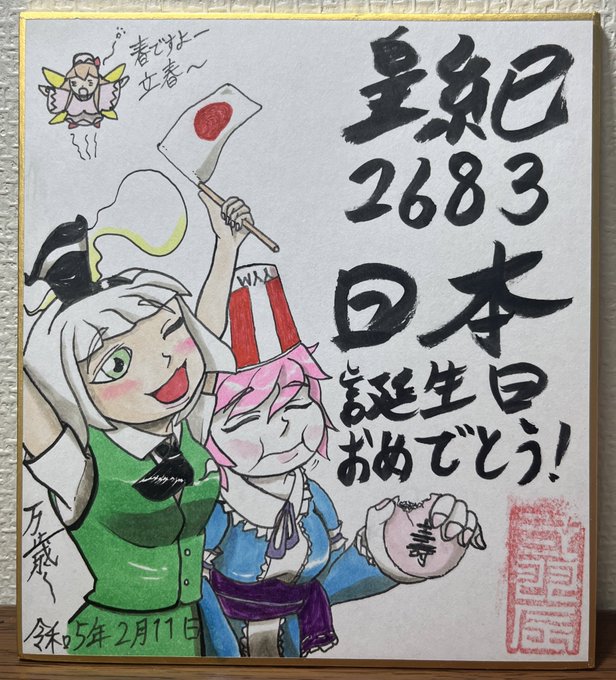 春ですよー
立春～
皇紀
2683
日本
誕生日
おめでとう！
万歳～
令和5年2月11日